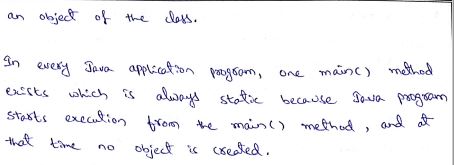 an object of the class.
In every Java application program, one main() method
exists which is always static because Java program
starts execution from the main() method, and at
that time no object is created.